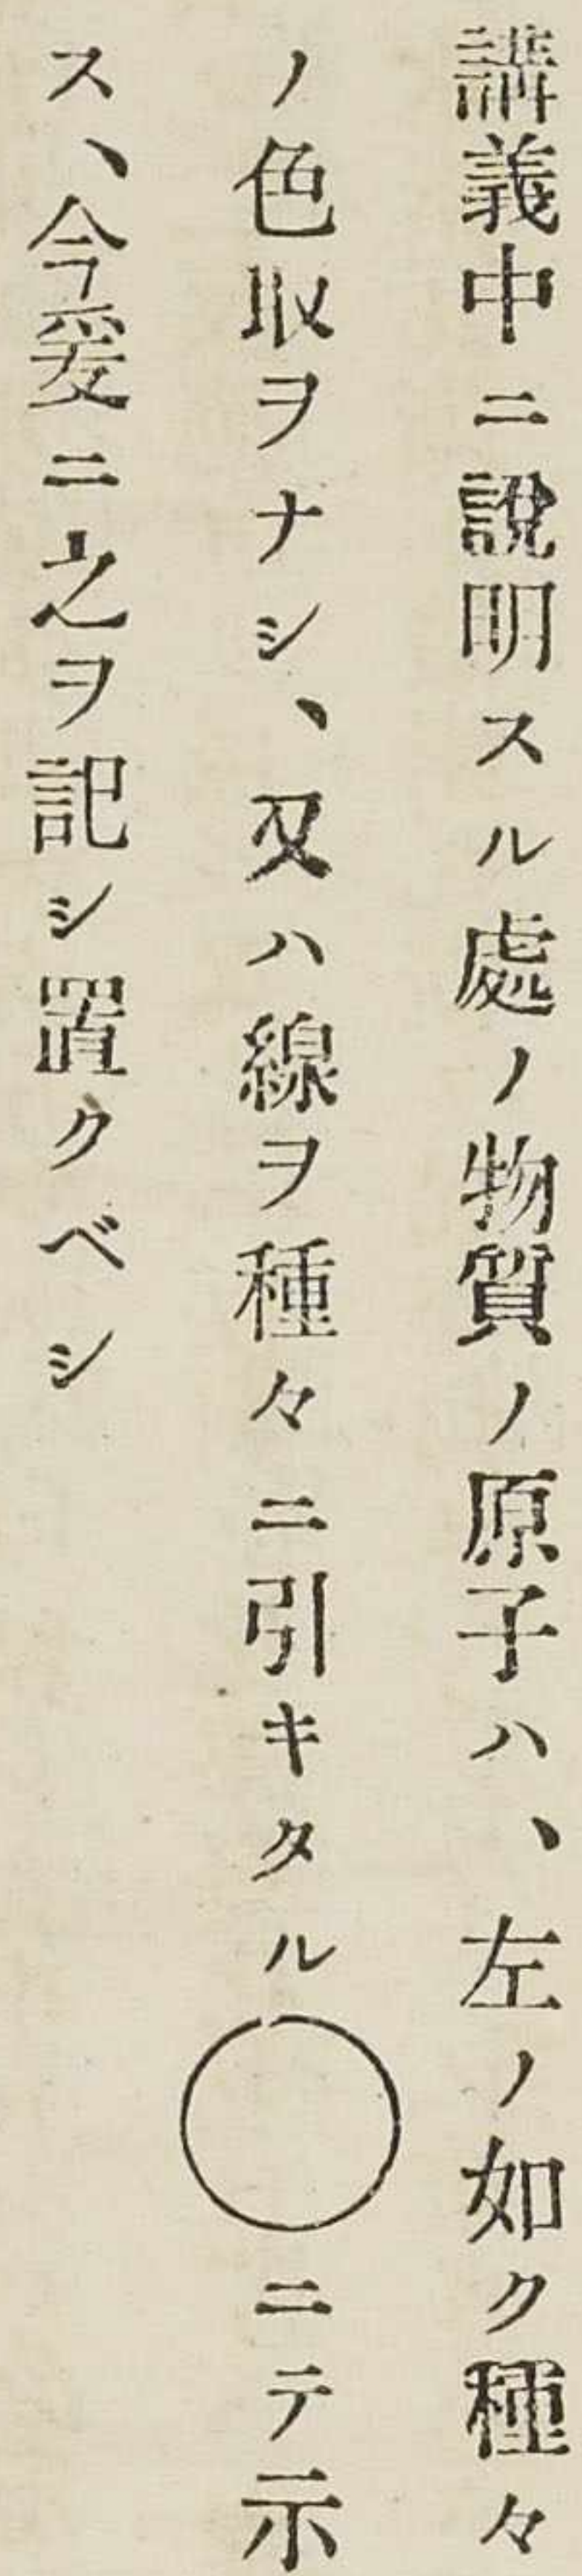 講義中ニ說明スル處ノ物質ノ原子ハ、左ノ如ク種々
ノ色取ヲナシ、又ハ線ヲ種々ニ引キタル◯ニテ示
ス、今爰ニ之ヲ記シ置クベシ